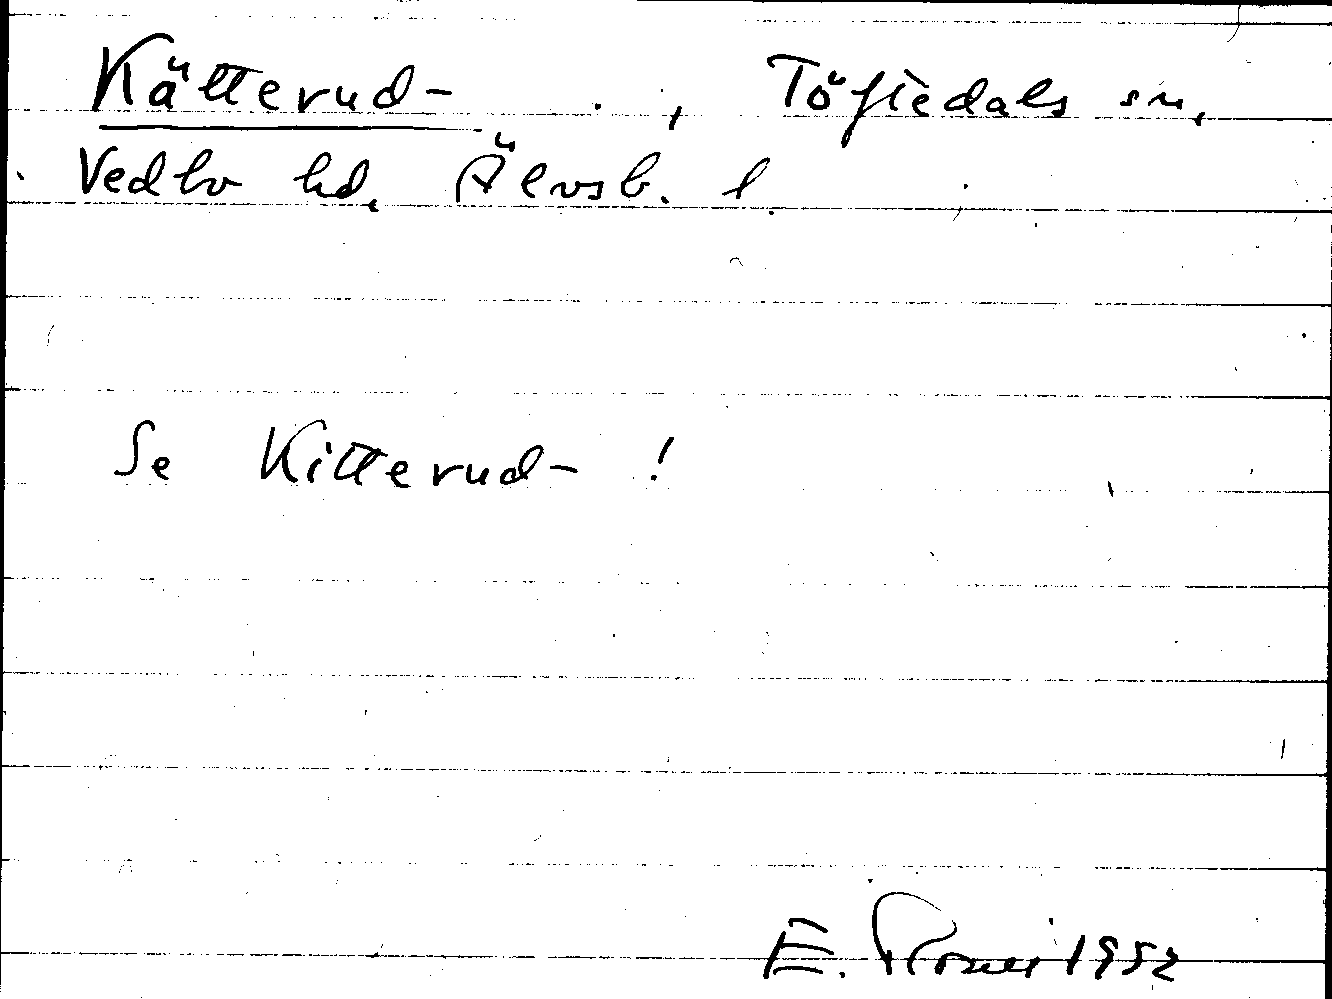 Kätterud- , Töftedals sn,
Vedbo hd, Älvsb. l.
Se Kitterud- !
E. 1952